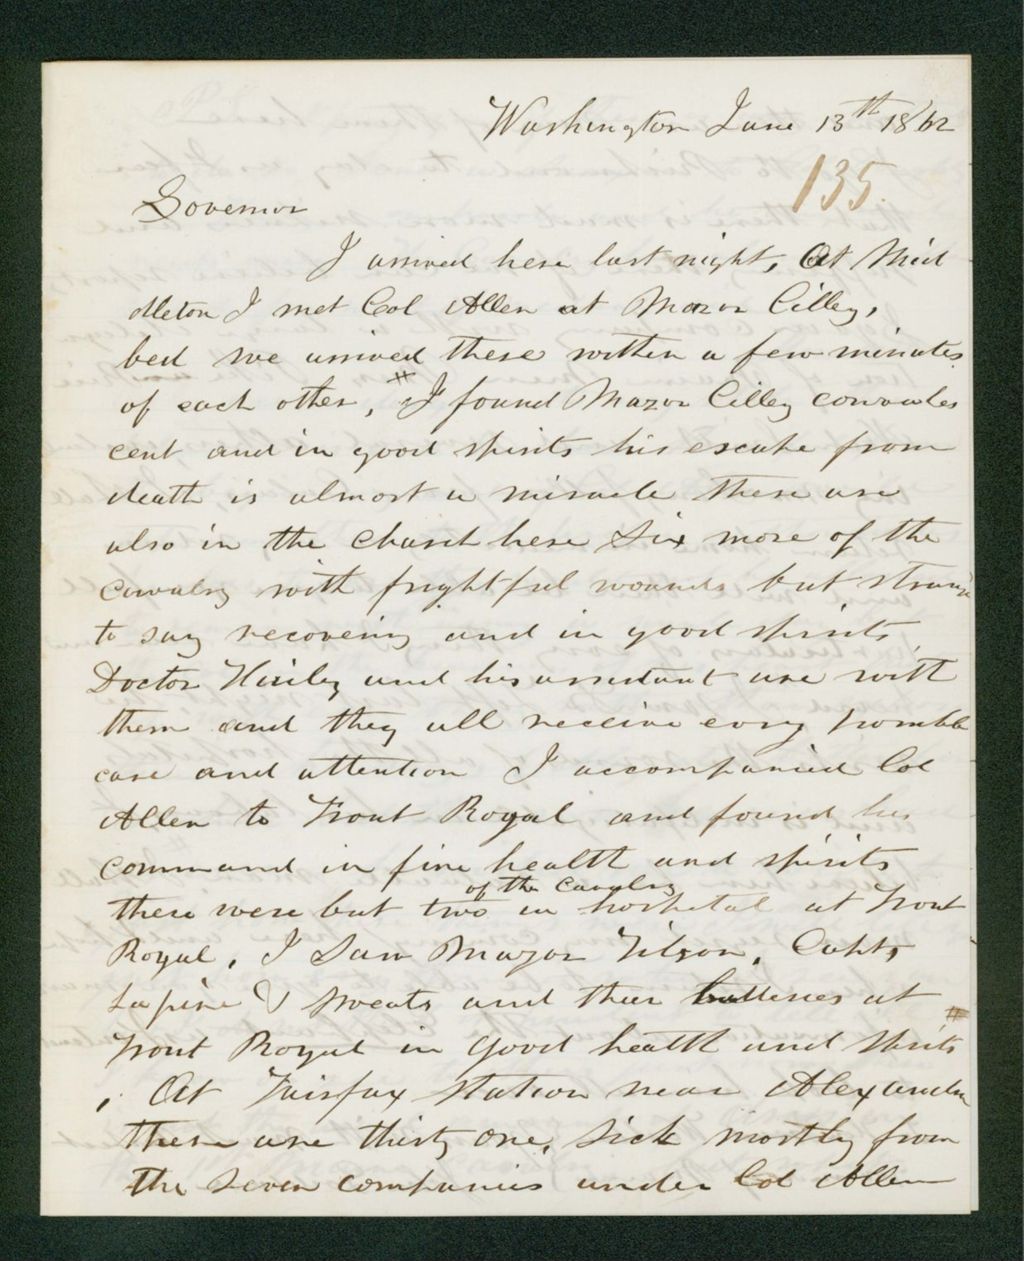 Washington June 13th 1862
135.
Governor
I arrived here last night, At Mid
dleton I met Col Allen at Major Cilleys,
bed we arrived there within a few minutes
of each other, # I found Major Cilley convales
cent and in good spirits his escape from
death is almost a miracle there are
also in the church here six more of the
cavalry with frightful wounds but strange
to say recovering and in good spirits
Doctor and his assistant are with
them and they all receive every possible
care and attention I accompanied Col
Allen to Front Royal and found his
command in fine health and spirits
of the cavalry
there were but two in hospital at Front
Royal, I saw Major Tilson, Capts
& Sweats and their batteries at
Front Royal in good health and spirits #
, At Fairfax Station near Alexandria
there are thirty one, sick mostly from
the seven companies under Col Allen